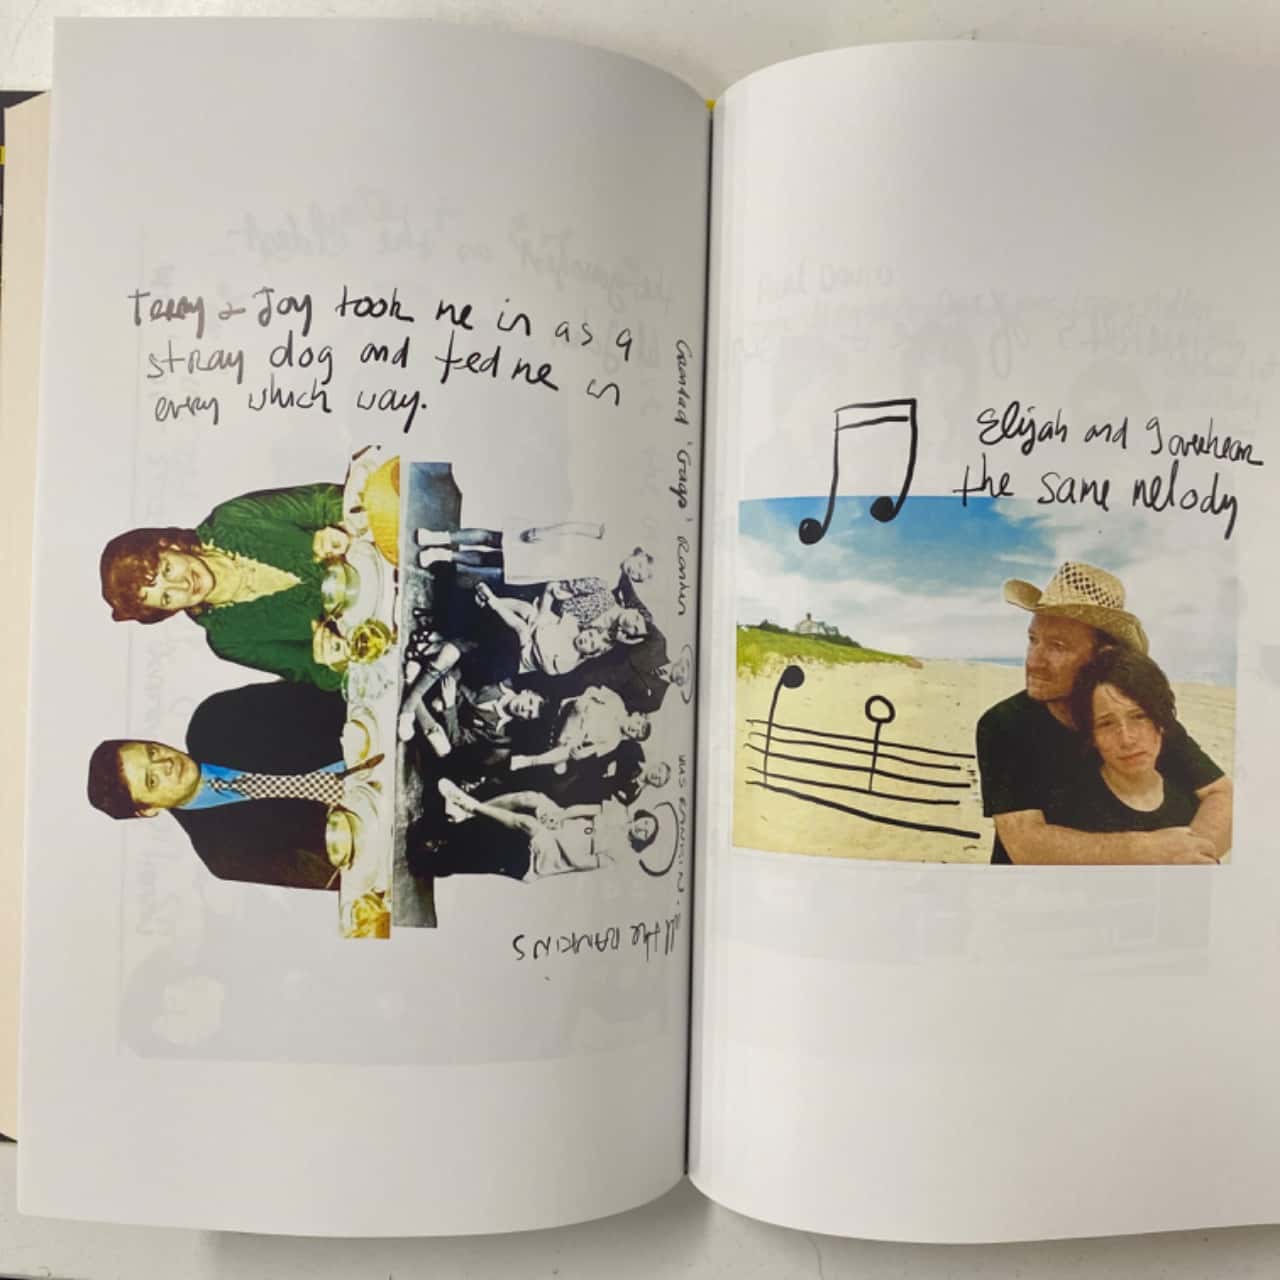 Terry & Joy took me in as a
stray dog and fed me in
every which way.
Grandad 'Gags' Rankin
WAS RANKIN.
all the RANKINS
Elijah and I overhear
the same melody